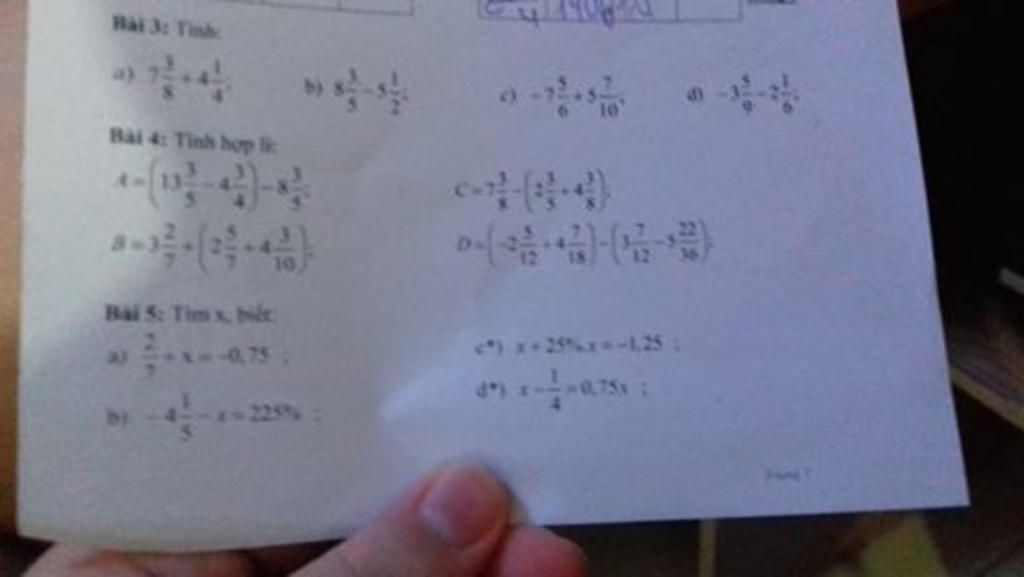 Bài 3: Tính:
a) 7 3/8 + 4 1/4; b) 8 3/5 - 5 1/2; c) -7 5/6 + 5 7/10; d) -3 5/9 - 2 1/6;
Bài 4: Tính hợp lí:
A = (13 3/5 - 4 3/4) - 8 3/5; C = 7 3/8 - (2 3/5 + 4 3/8);
B = 3 2/7 + (2 5/7 + 4 3/10); D = (-2 5/12 + 4 7/18) - (3 7/12 - 5 22/36);
Bài 5: Tìm x, biết:
a) 2/7 + x = -0,75 ; c*) x + 25%.x = -1,25 ;
b) -4 1/5 - x = 225% ; d*) x - 1/4 = 0,75x ;
Trang 7